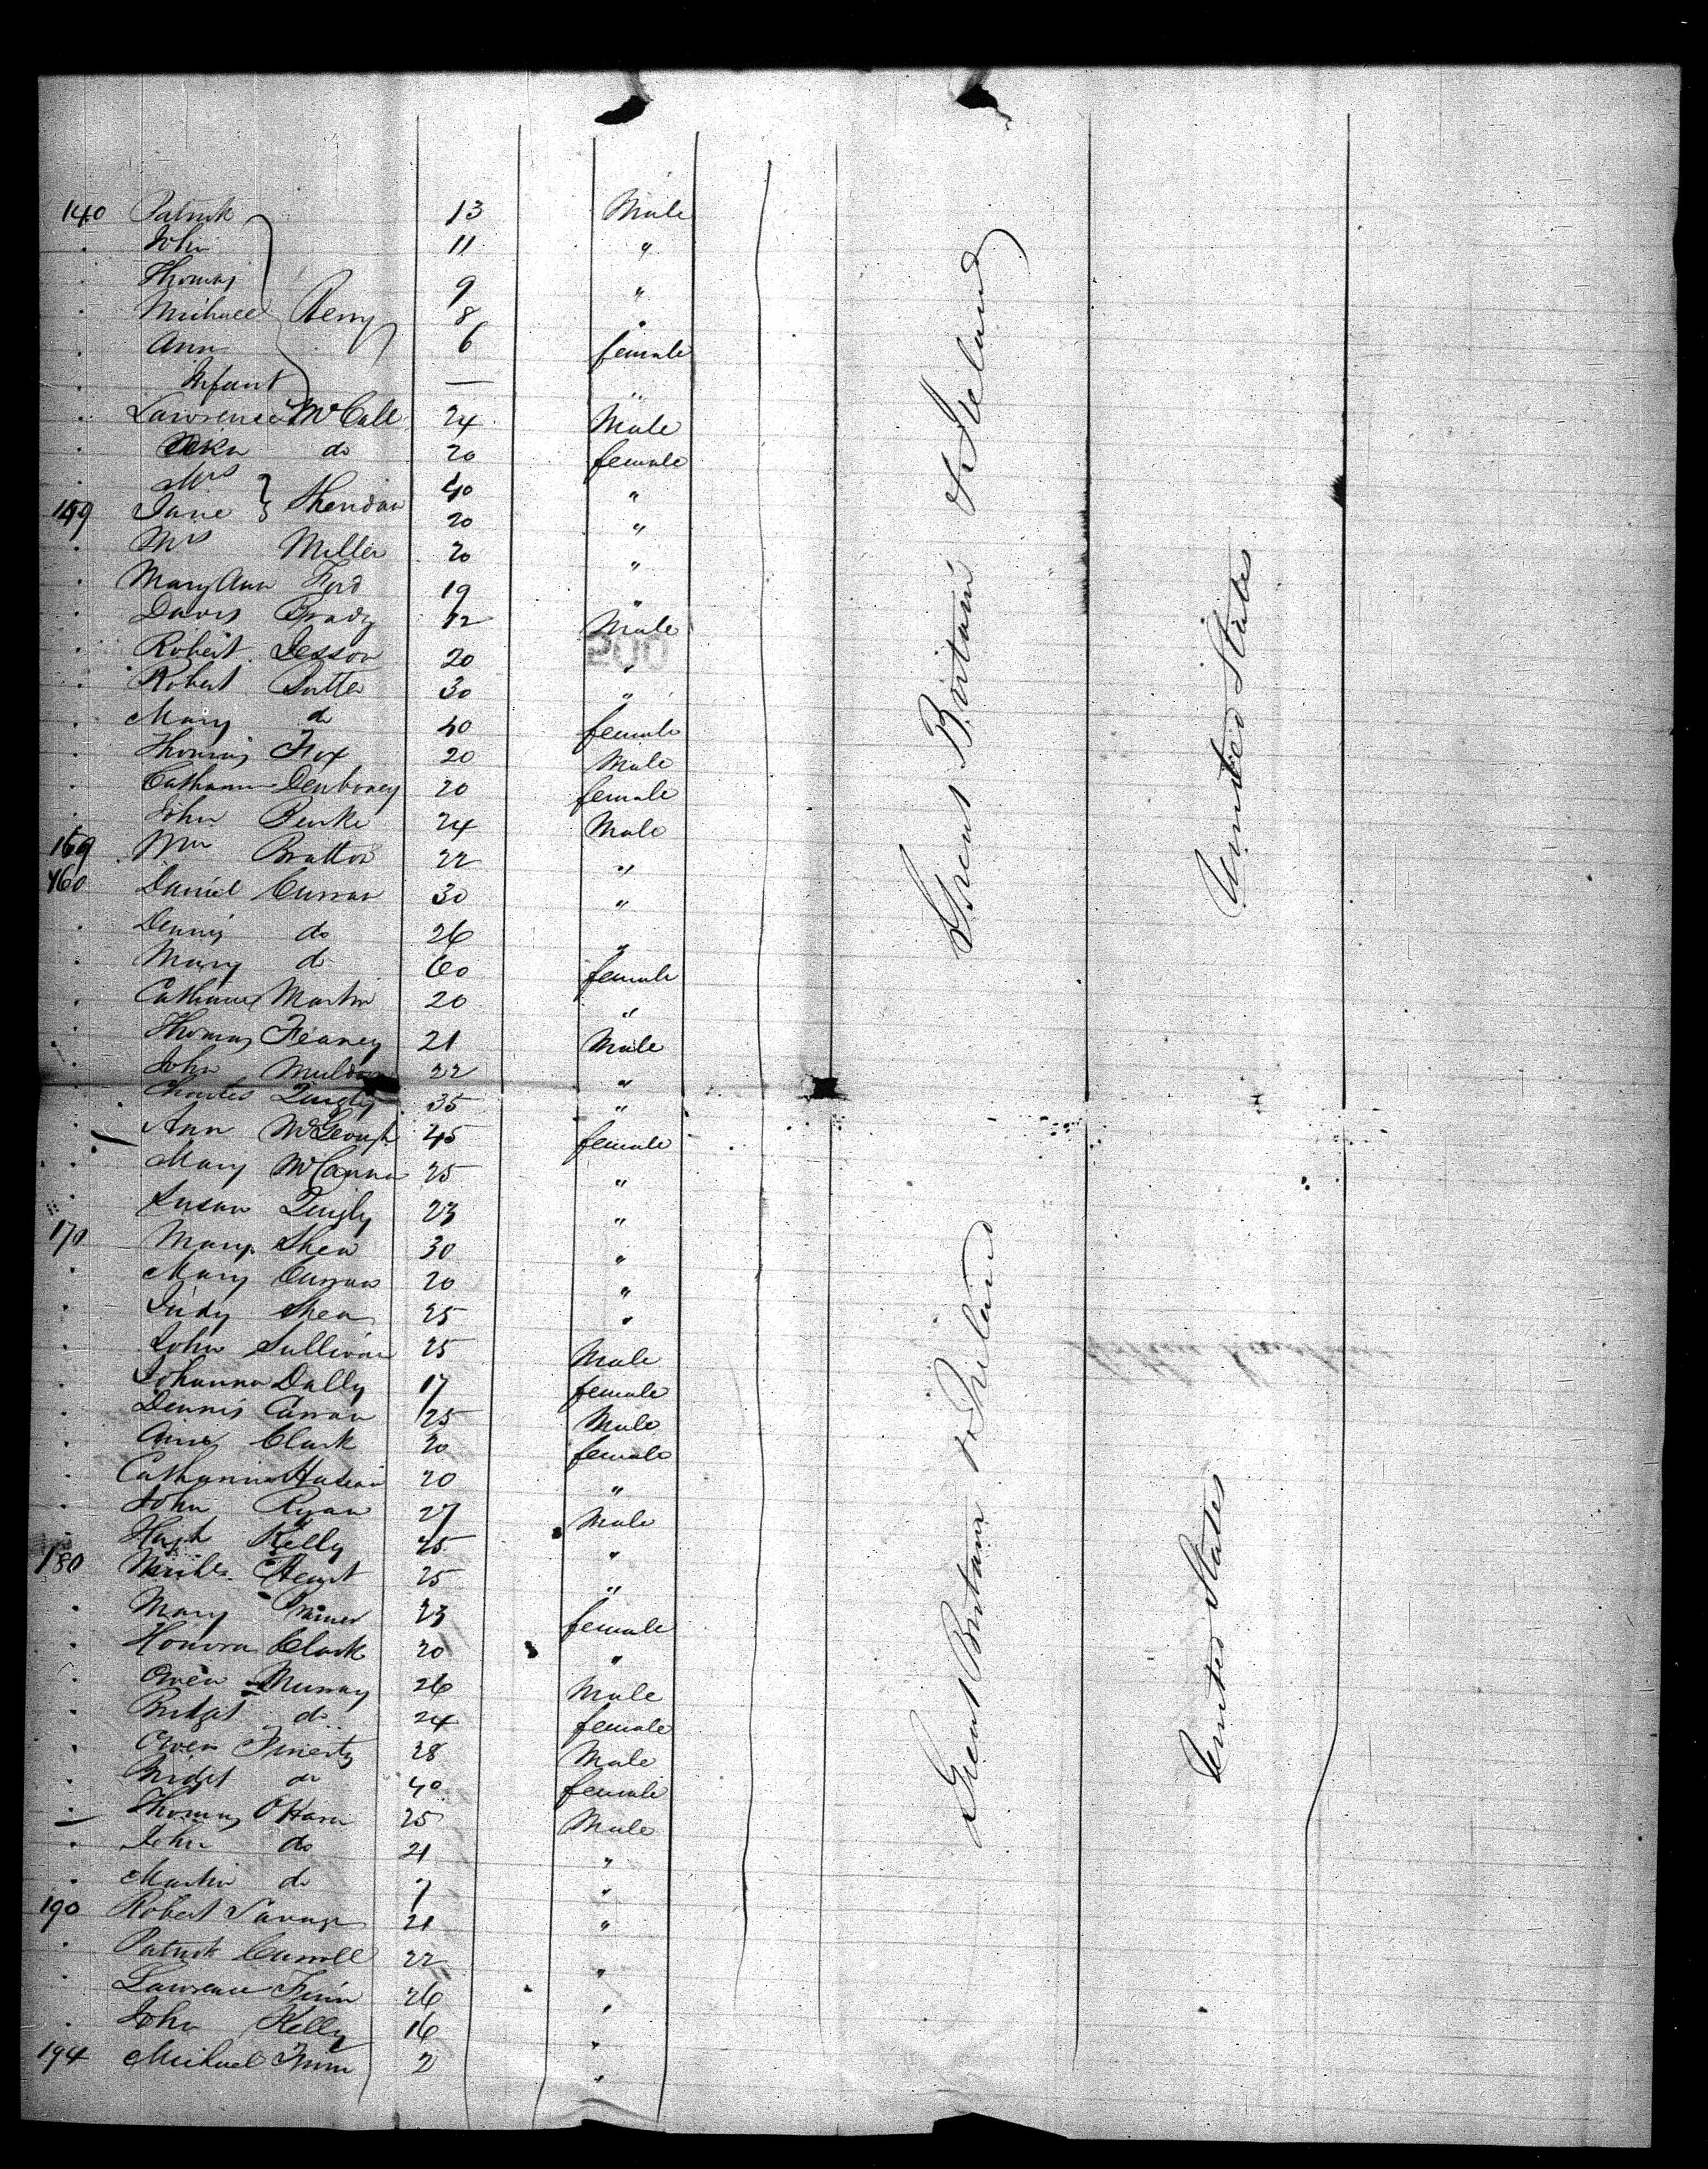 140 Patrick 13 Male
John 11 "
Thomas 9 "
Michael Berry 8 "
Ann 6 female
Infant — "
Lawrence McCall 24 Male
do 20 female
Mrs 40 "
149 Jane Sheridan 20 "
Mrs Miller 20 "
Mary Ann Ford 19 "
Davis Brady 12 Male
200
Robert Jesson 20 "
Robert 30 "
Mary do 40 female
Thomas Fox 20 Male
Catharine 20 female
John Burke 24 Male
159 Wm Bratton 22 "
160 Daniel Curran 30 "
Dennis do 26 "
Mary do 60 female
Catharine Martin 20 "
Thomas Feaney 21 Male
John 22 "
Charles Quigly 35 "
Ann McGeough 45 female
Mary McCanna 25 "
Susan Quigly 23 "
170 Mary Shea 30 "
Mary Curran 20 "
Judy Shea 25 "
John Sullivan 25 Male
Johanna Dally 17 female
Dennis Curran 25 Male
Ann Clark 20 female
Catharine 20 "
John Ryan 27 Male
Hugh Kelly 45 "
180 25 "
Mary 23 female
Honora Clark 20 "
Owen Murray 26 Male
Bridget do 24 female
Owen Finerty 28 Male
Bridget do 40 female
Thomas O'Hara 25 Male
John do 21 "
Martin do 7 "
190 Robert Savage 21 "
Patrick Carroll 22 "
Lawrence Finn 26 "
John Kelly 16 "
194 Michael Finn 2 "
Great Britain & Ireland
United States
Great Britain & Ireland
United States